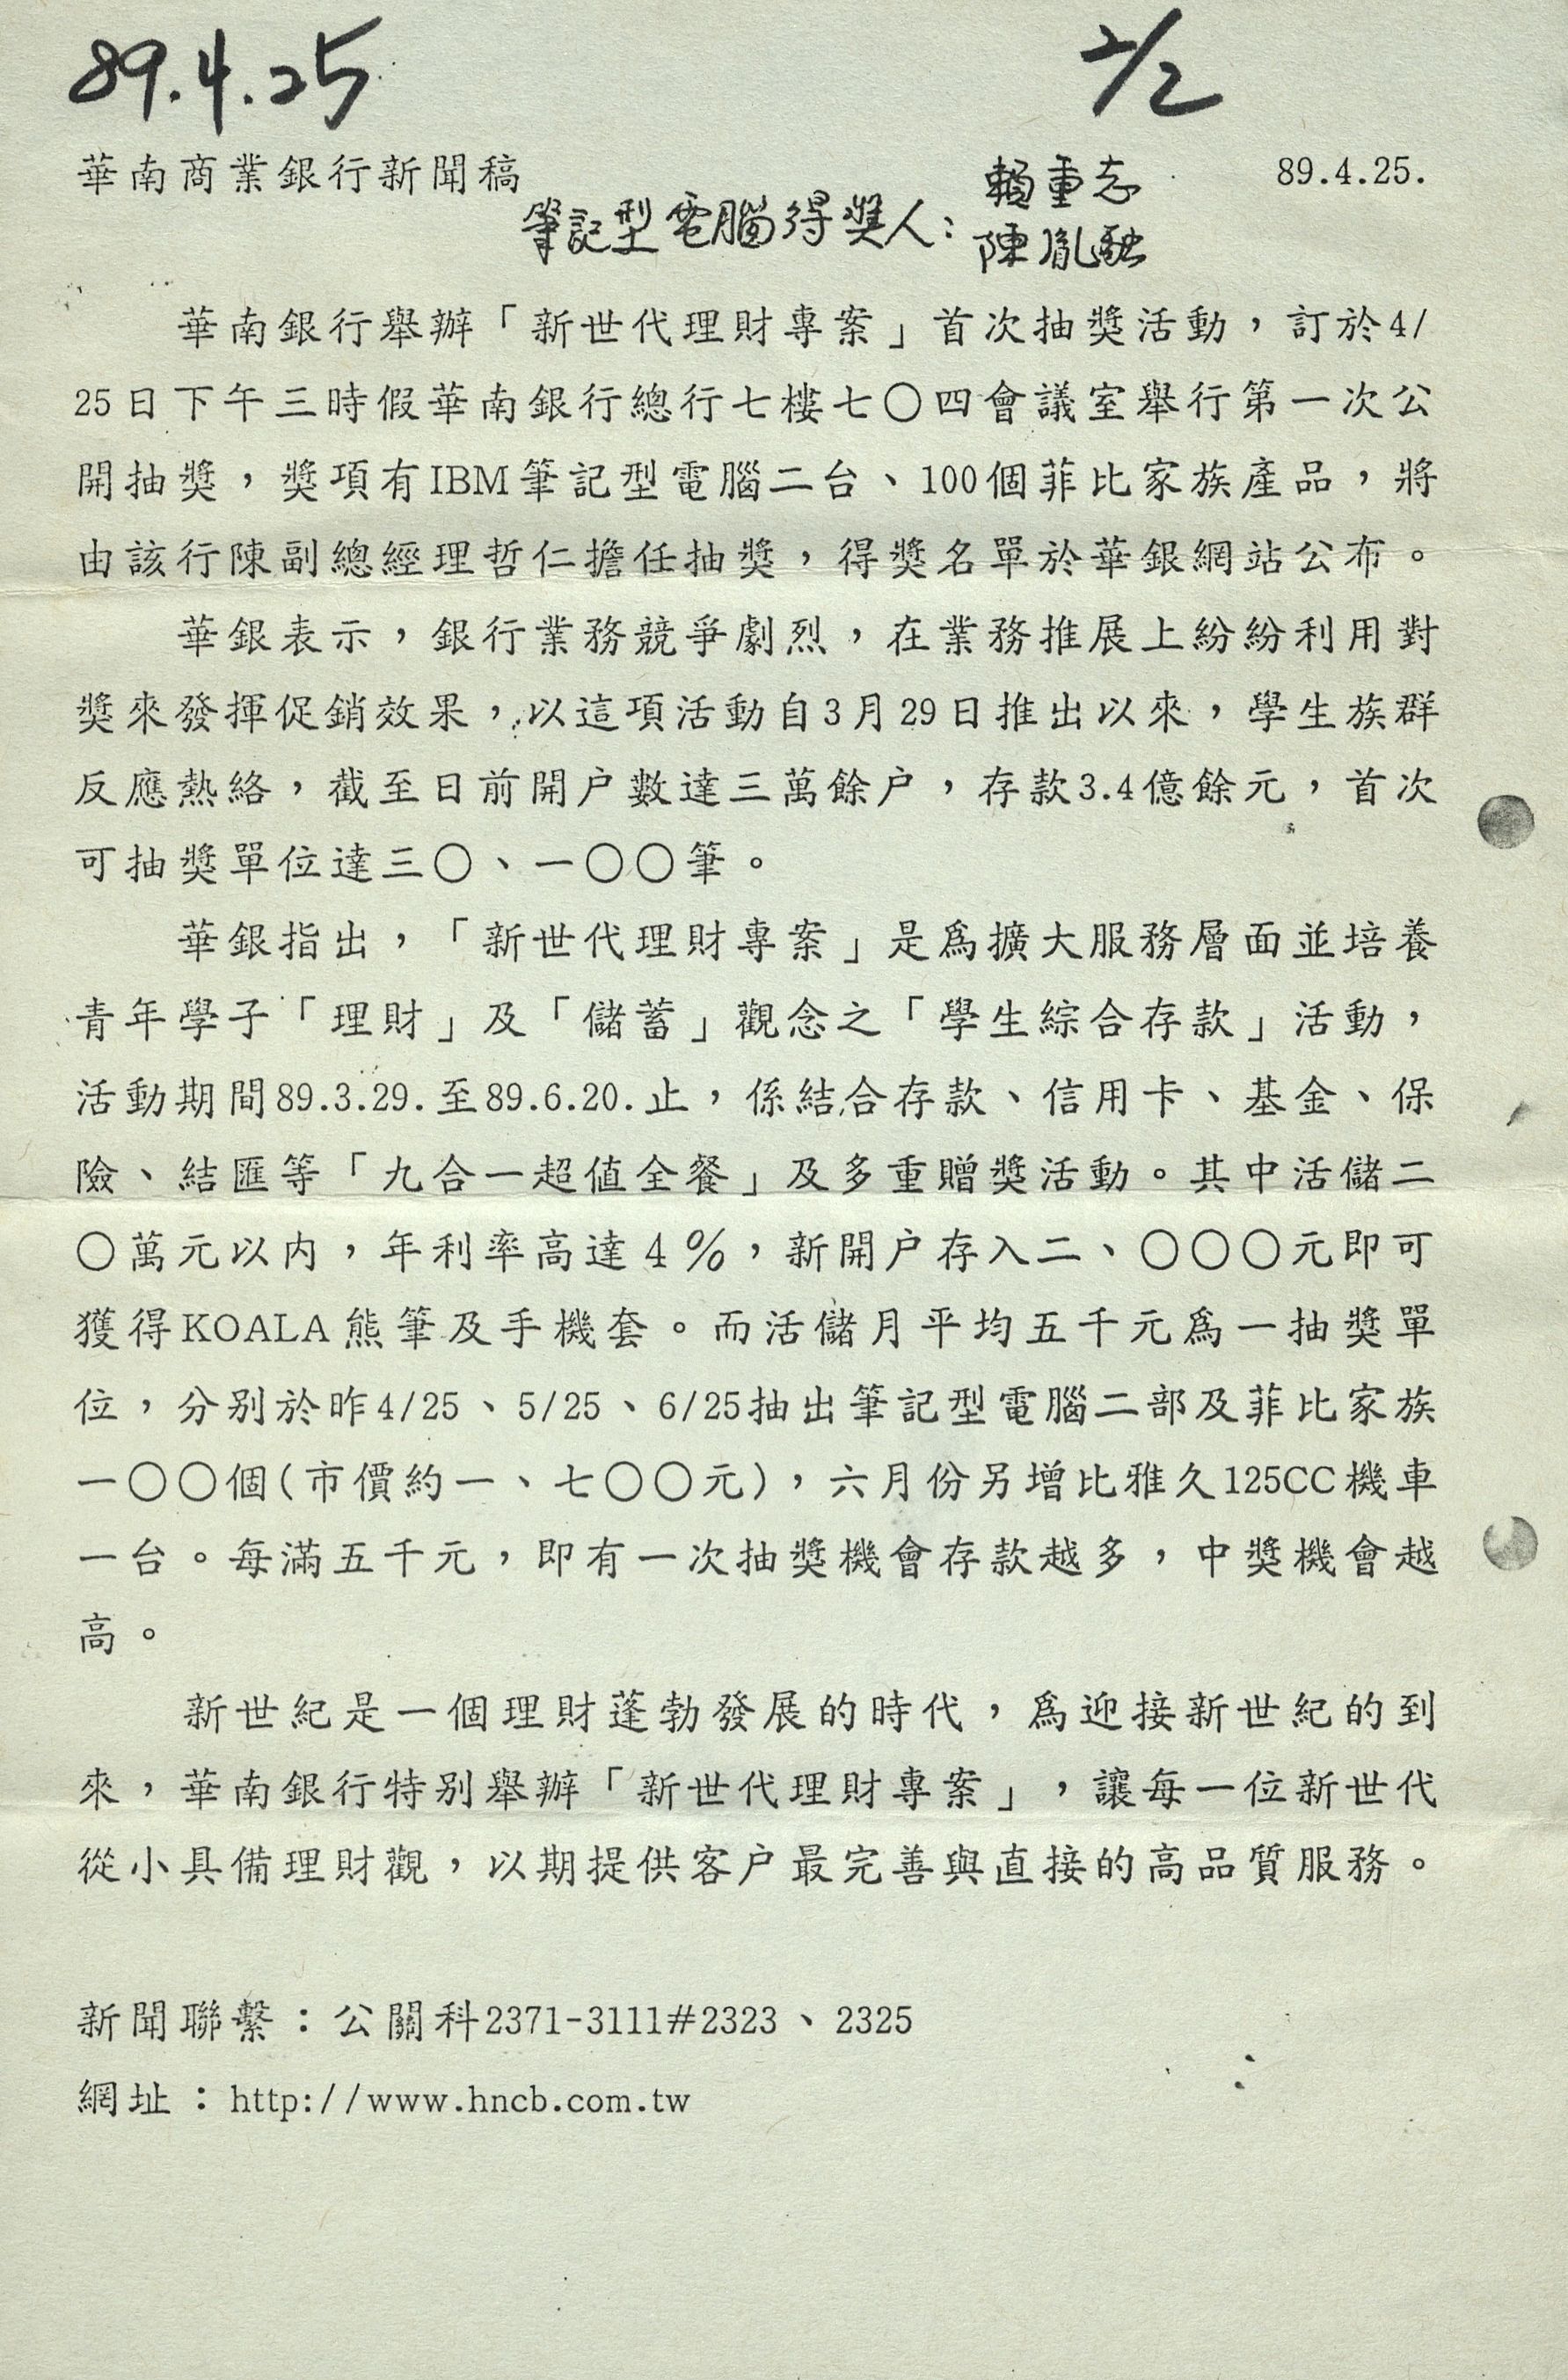 89.4.25
2/2
華南商業銀行新聞稿
89.4.25.
筆記型電腦得獎人：
賴重志
陳胤
華南銀行舉辦「新世代理財專案」首次抽獎活動，訂於4/
25日下午三時假華南銀行總行七樓七〇四會議室舉行第一次公
開抽獎，獎項有IBM筆記型電腦二台、100個菲比家族產品，將
由該行陳副總經理哲仁擔任抽獎，得獎名單於華銀網站公布。
華銀表示，銀行業務競爭劇烈，在業務推展上紛紛利用對
獎來發揮促銷效果，以這項活動自3月29日推出以來，學生族群
反應熱絡，截至日前開户數達三萬餘户，存款3.4億餘元，首次
可抽獎單位達三〇、一〇〇筆。
華銀指出，「新世代理財專案」是爲擴大服務層面並培養
青年學子「理財」及「儲蓄」觀念之「學生綜合存款」活動，
活動期間89.3.29.至89.6.20.止，係結合存款、信用卡、基金、保
險、結匯等「九合一超值全餐」及多重贈獎活動。其中活儲二
〇萬元以内，年利率高達4%，新開户存入二、〇〇〇元即可
獲得KOALA熊筆及手機套。而活儲月平均五千元爲一抽獎單
位，分别於昨4/25、5/25、6/25抽出筆記型電腦二部及菲比家族
一〇〇個(市價約一、七〇〇元)，六月份另增比雅久125CC機車
一台。每滿五千元，即有一次抽獎機會存款越多，中獎機會越
高。
新世紀是一個理財蓬勃發展的時代，爲迎接新世紀的到
來，華南銀行特别舉辦「新世代理財專案」，讓每一位新世代
從小具備理財觀，以期提供客户最完善與直接的高品質服務。
新聞聯繫：公關科2371-3111#2323、2325
網址：http://www.hncb.com.tw